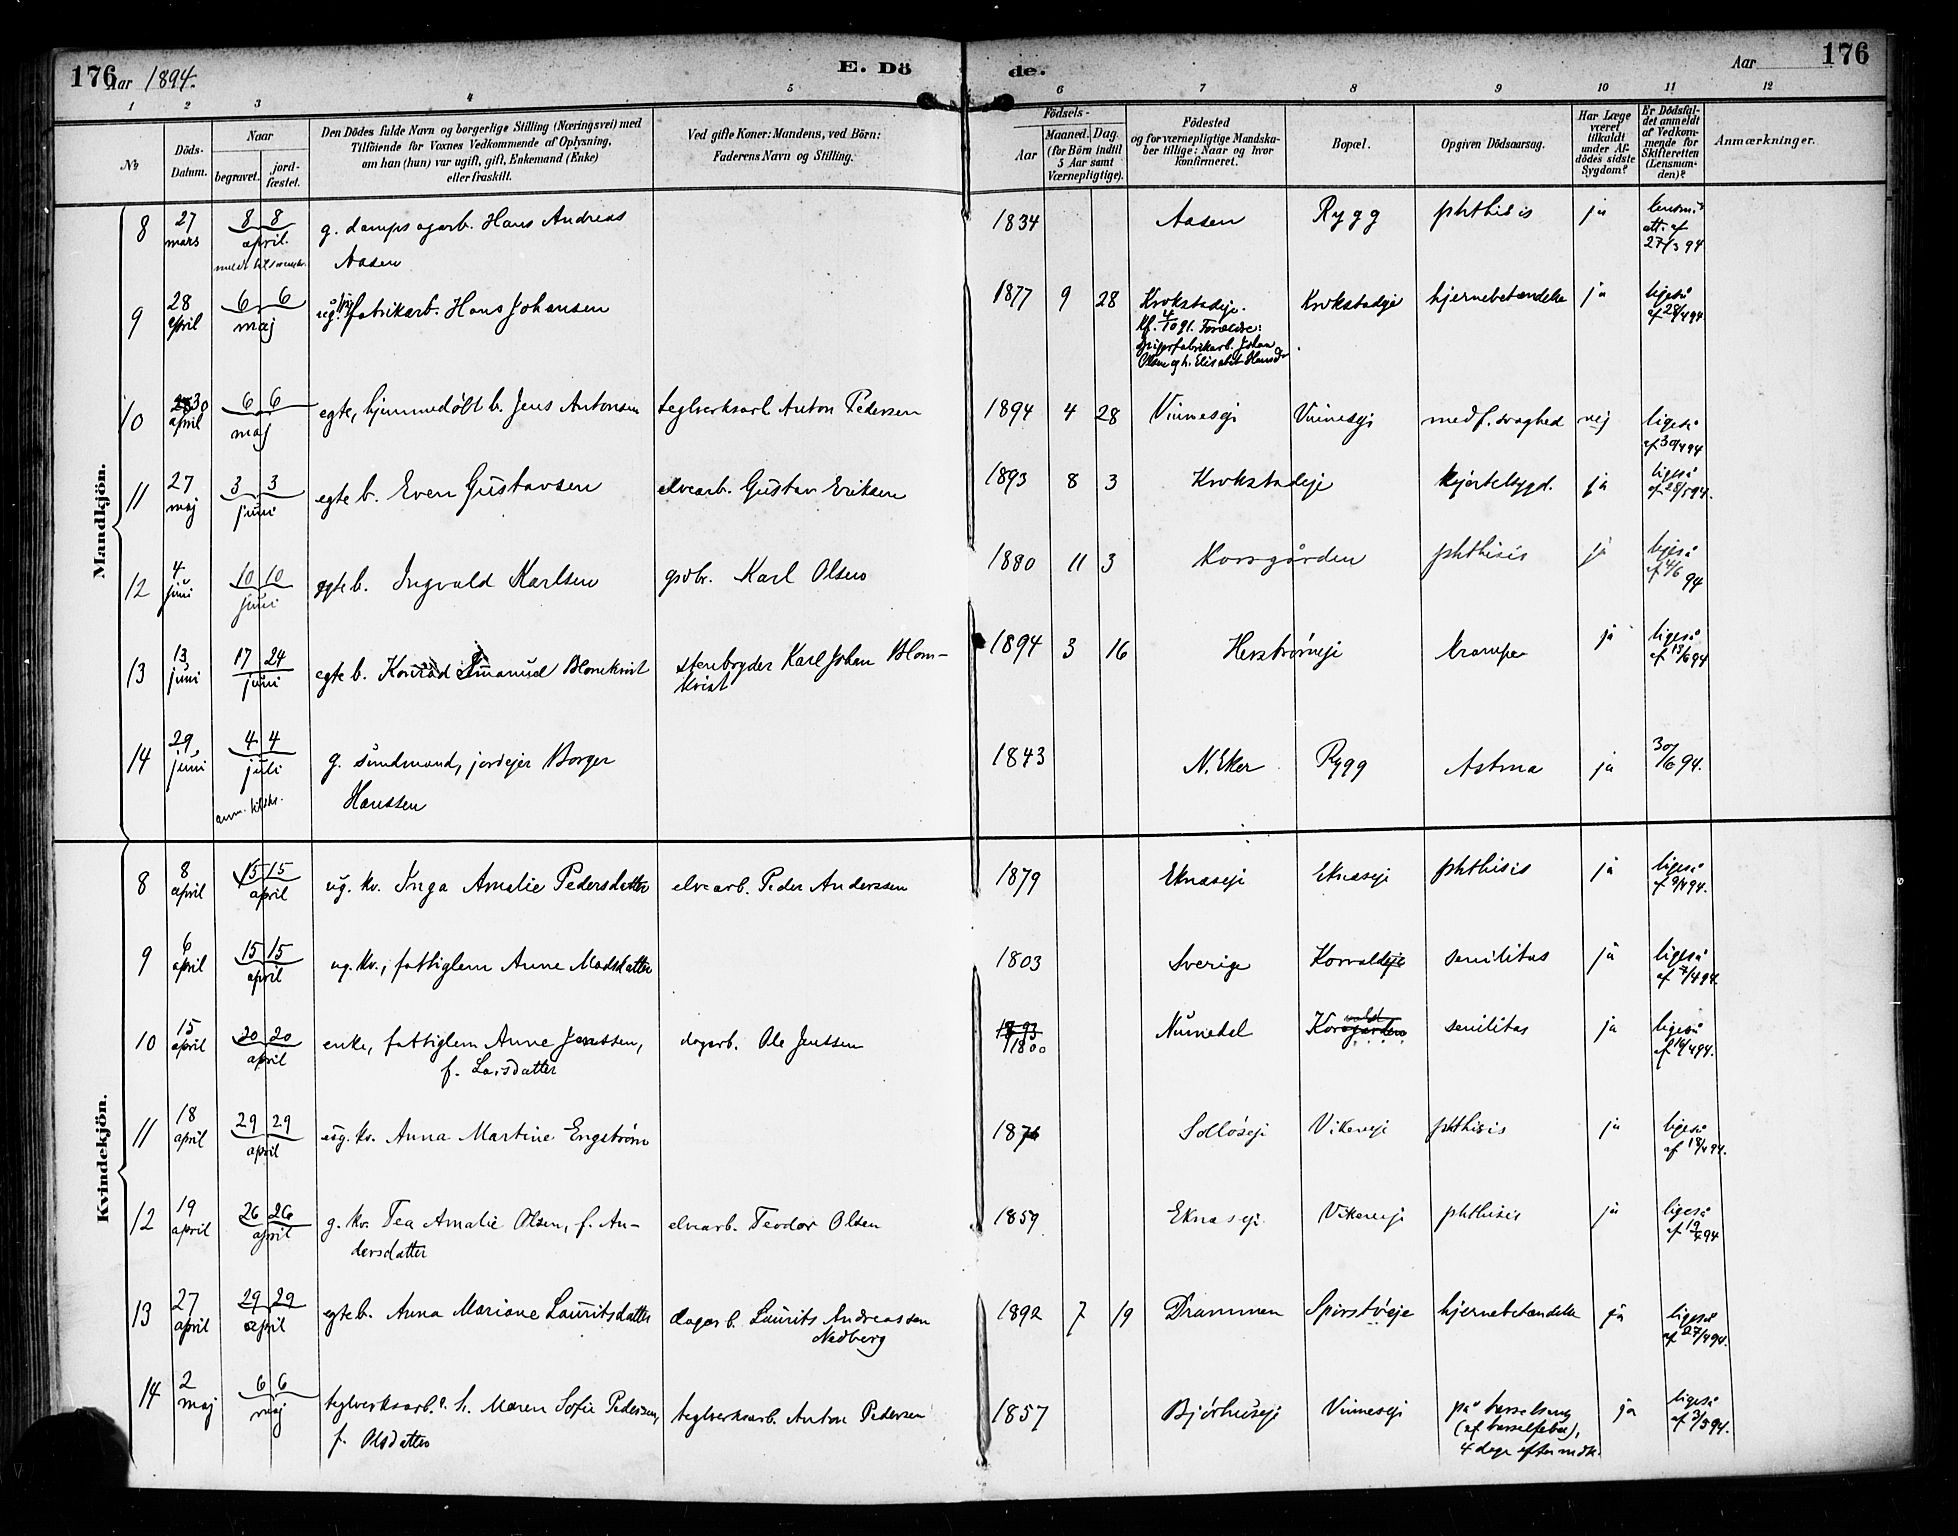 176
Aar 1894.
E. Dö
de.
Aar
176
1 2 3 4 5 6 7 8 9 10 11 12
No
Döds-
Datum.
Naar
begravet.
jord-
fæstet.
Den Dödes fulde Navn og borgerlige Stilling (Næringsvei) med
Tilföiende for Voxnes Vedkommende af Oplysning,
om han (hun) var ugift, gift, Enkemand (Enke)
eller fraskilt.
Ved gifte Koner: Mandens, ved Börn:
Faderens Navn og Stilling.
Födsels-
Aar
Maaned. Dag.
(for Börn indtil
5 Aar samt
Værnepligtige).
Födested
og for værnepligtige Mandska-
ber tillige: Naar og hvor
konfirmeret.
Bopæl.
Opgiven Dödsaarsag.
Har Læge
været
tilkaldt
under Af-
dödes sidste
Sygdom?
Er Dödsfal-
det anmeldt
af Vedkom-
mende for
Skifteretten
(Lensman-
den)?
Anmærkninger.
Mandkjön.
8 27 mars 8 8 april g. dampsagarb. Hans Andreas
Aasen
1834 Aasen Rygg phthisis ja
att. af
27/3 94
9 28 april 6 6 maj ug. fabrikarb. Hans Johansen
1877 9 28 Krokstadeje.
Kf. 4/10 91. Forældre:
Spigerfabrikarb. Johan
Olsen og h. Elisabet Hansdr.
Krokstadeje hjernebetændelse ja ligeså
af 28/4 94.
10 30 april 6 6 maj egte, hjemmedøbt b. Jens Antonsen teglverksarb. Anton Pedersen
1894 4 28 Vinneseje Vinneseje medf. svaghed nej ligeså
af 30/4 94
11 27 maj 3 3 juni egte b. Even Gustavsen elvearb. Gustav Eriksen
1893 8 3 Krokstadeje ja ligeså
af 28/5 94.
12 4 juni 10 10 juni egte b. Ingvald Karlsen gårdbr. Karl Olsen
1880 11 3 Korsgården phthisis ja ligeså
af 4/6 94
13 13 juni 17 24 juni egte b. Konrad Emanuel Blomkvist stenbryder Karl Johan Blom-
kvist
1894 3 16 Herstrømeje krampe ja ligeså
af 13/6 94
14 29 juni 4 4 juli g. sundmand, jordejer Borger
Hanssen
1843 N. Eker Rygg Astma ja 30/6 94.
Kvindekjön.
8 8 april 15 15 april ug. kv. Inga Amalie Pedersdatter elvearb. Peder Anderssen
1879 Eknæseje Eknæseje phthisis ja ligeså
af 9/4 94.
9 6 april 15 15 april ug. kv., fattiglem Anne Madsdatter
1803 Sverige Korvaldeje senilitas ja ligeså
af 7/4 94.
10 15 april 20 20 april enke, fattiglem Anne Jenssen,
f. Larsdatter
dagarb. Ole Jenssen
1793
1800 Numedal Korsgården senilitas ja ligeså
af 16/4 94.
11 18 april 29 29 april ug. kv. Anna Martine Engstrøm
1876 Solløseje Vikereje phthisis ja ligeså
af 18/4 94.
12 19 april 26 26 april g. kv. Tea Amalie Olsen, f. An-
dersdatter
elvearb. Teodor Olsen
1859 Eknæseje Vikereje phthisis ja ligeså
af 19/4 94
13 27 april 29 29 april egte b. Anna Mariane Lauritsdatter dagarb. Laurits Andreassen
Nedberg
1892 7 19 Drammen hjernebetændelse ja ligeså
af 27/4 94.
14 2 maj 6 6 maj teglverksarb. h. Maren Sofie Pedersen,
f. Olsdatter
teglverksarb. Anton Pedersen
1857 Bjørhuseje Vinneseje på barselseng
(af barselfeber),
4 dage efter nedk. ja ligeså
af 3/5 94.